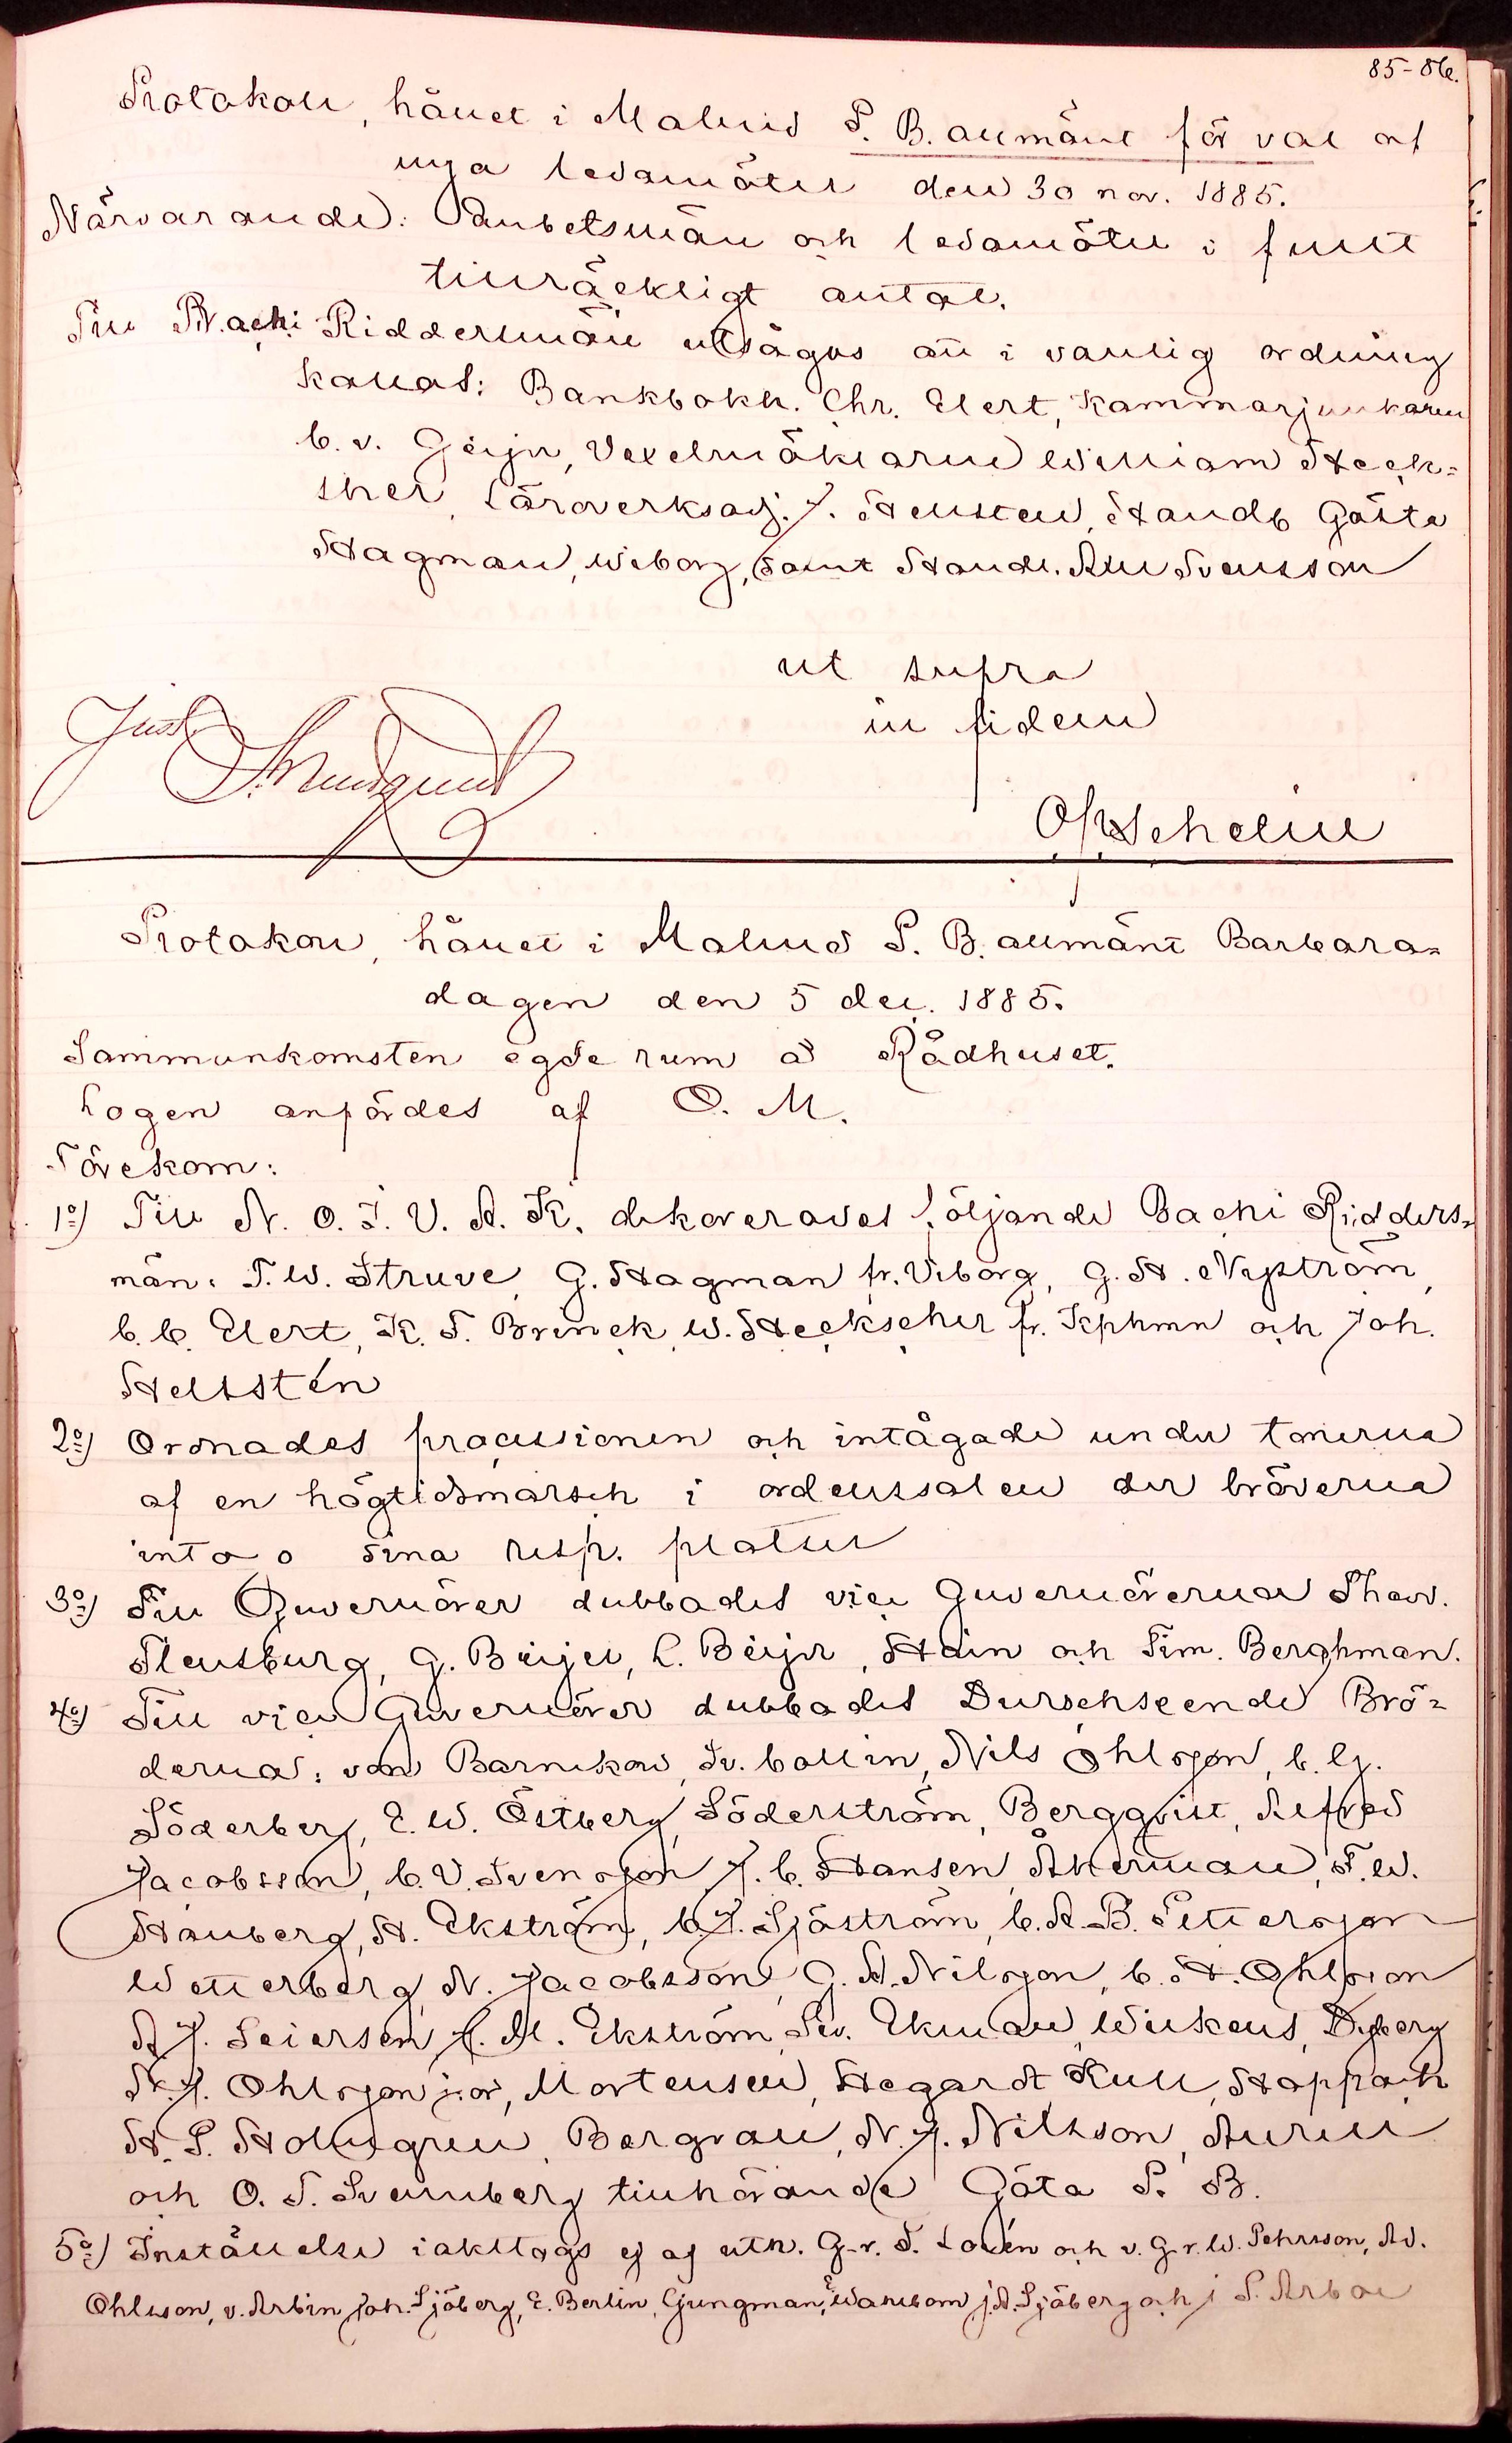 85-86.
Protokoll, hållet i Malmö P. B. allmänt för val af
nya ledamöter den 30 nov. 1885.
Närvarande: Embetsmän och ledamöter i fullt
tillräckligt antal.
Till R. Bachi Riddersmän utsågos att i vanlig ordning
kallas: Bankbokh. Chr. Elert, Kammarjunkaren
C. v. Geijer, Vexelmäklarne William Heck-
sher, Läroverksadj. J. Hellsten, Handl. Gösta
Hagman, Wiborg, samt Handl. Alr Svensson
ut supra
in fidem
Just.
Protokoll, hållet i Malmö P. B. allmänt Barbara-
dagen den 5 dec. 1885.
Sammankomsten egde rum å Rådhuset.
Logen anfördes af O. M.
Förekom:
1o) Till N. O. I. V. A. K. dekorerades följande Bachi Ridders-
män: F. W. Struve, G. Hagman fr. Viborg, G. H. Nyström,
C. C. Elert, K. F. Brinck, W. Heckscher fr. Kphmn och Joh.
Hellstén
2o) Ordnades processionen och intågade under tonerna
af en högtidsmarsch i ordenssalen der bröderna
intogo sina resp. platser
3o) Till Guvernörer dubbades vice Guvernörerna Theod.
Flensburg, G. Beijer, L. Beijer, Hain och Fim. Berghman.
4o) Till vice Guvernörer dubbades Durschseende Brö-
derna: von Barnekow, Sv. Collin, Nils Ohlsson, C. Lj.
Söderberg, E. W. Östberg, Söderström, Bergqvist, Alfred
Jacobsson, C. V. Svensson, J. C. Hansen, Åkerman, F. W.
Hallberg, H. Ekström, C. J. Sjöström, C. A. B. Pettersson
Wetterberg, N. Jacobsson, G. A. Nilsson, C. H. Ohlsson
A J. Seiersen, C. M. Ekström, Sv. Ekman, Winkens, Dyberg
N. J. Ohlsson j:or, Mortensen, Hegardt Kull, Hoppach
H. P. Holmgren, Bergvall, N. J. Nilsson, Aurell
och O. F. Svernberg tillhörande Göta P. B.
5o) Inställelse iakttogs ej af utn. G-r. F. Lovén och v. G r. W. Pehrsson, Ad.
Ohlsson, v. Arbin, Joh. Sjöberg, E. Berlin, Ljungman, E Wahlbom, J. A. Sjöberg och J P. Arboe